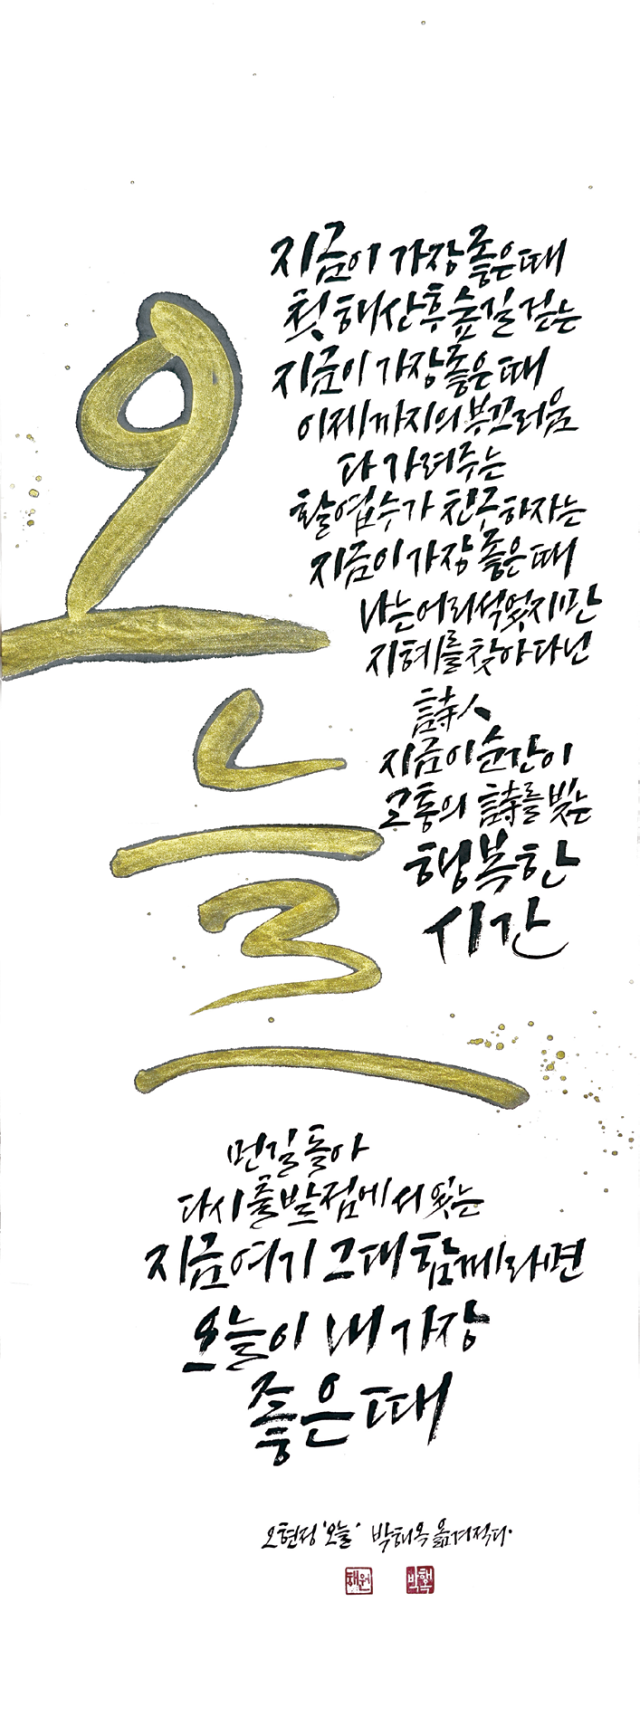 오늘
지금이 가장 좋은 때
첫 해산 후 숲길 걷는
지금이 가장 좋은 때
이제까지의 부끄러움
다 가려주는
활엽수가 친구하자는
지금이 가장 좋은 때
나는 어리석었지만
지혜를 찾아다닌
詩人
지금 이 순간이
고통의 詩를 빚는
행복한
시간
먼 길 돌아
다시 출발점에 서 있는
지금 여기 그대 함께라면
오늘이 내 가장
좋은 때
오현정 '오늘' 박해옥 옮겨적다.